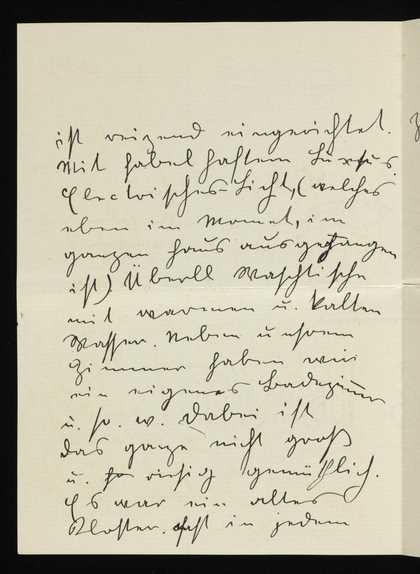 ist reizend eingerichtet.
Mit fabelhaftem Luxus.
Electrisches-Licht, (welches
eben im Momet, im
ganzen Haus ausgegangen
ist) Überall Waschtische
mit warmen u. kalten
Wasser. Neben unserem
Zimmer haben wir
ein eigenes Badezimmer
u. s. w. Dabei ist
das ganze nicht groß
u. riesig gemütlich.
Es war ein altes
Kloster. ist in jedem